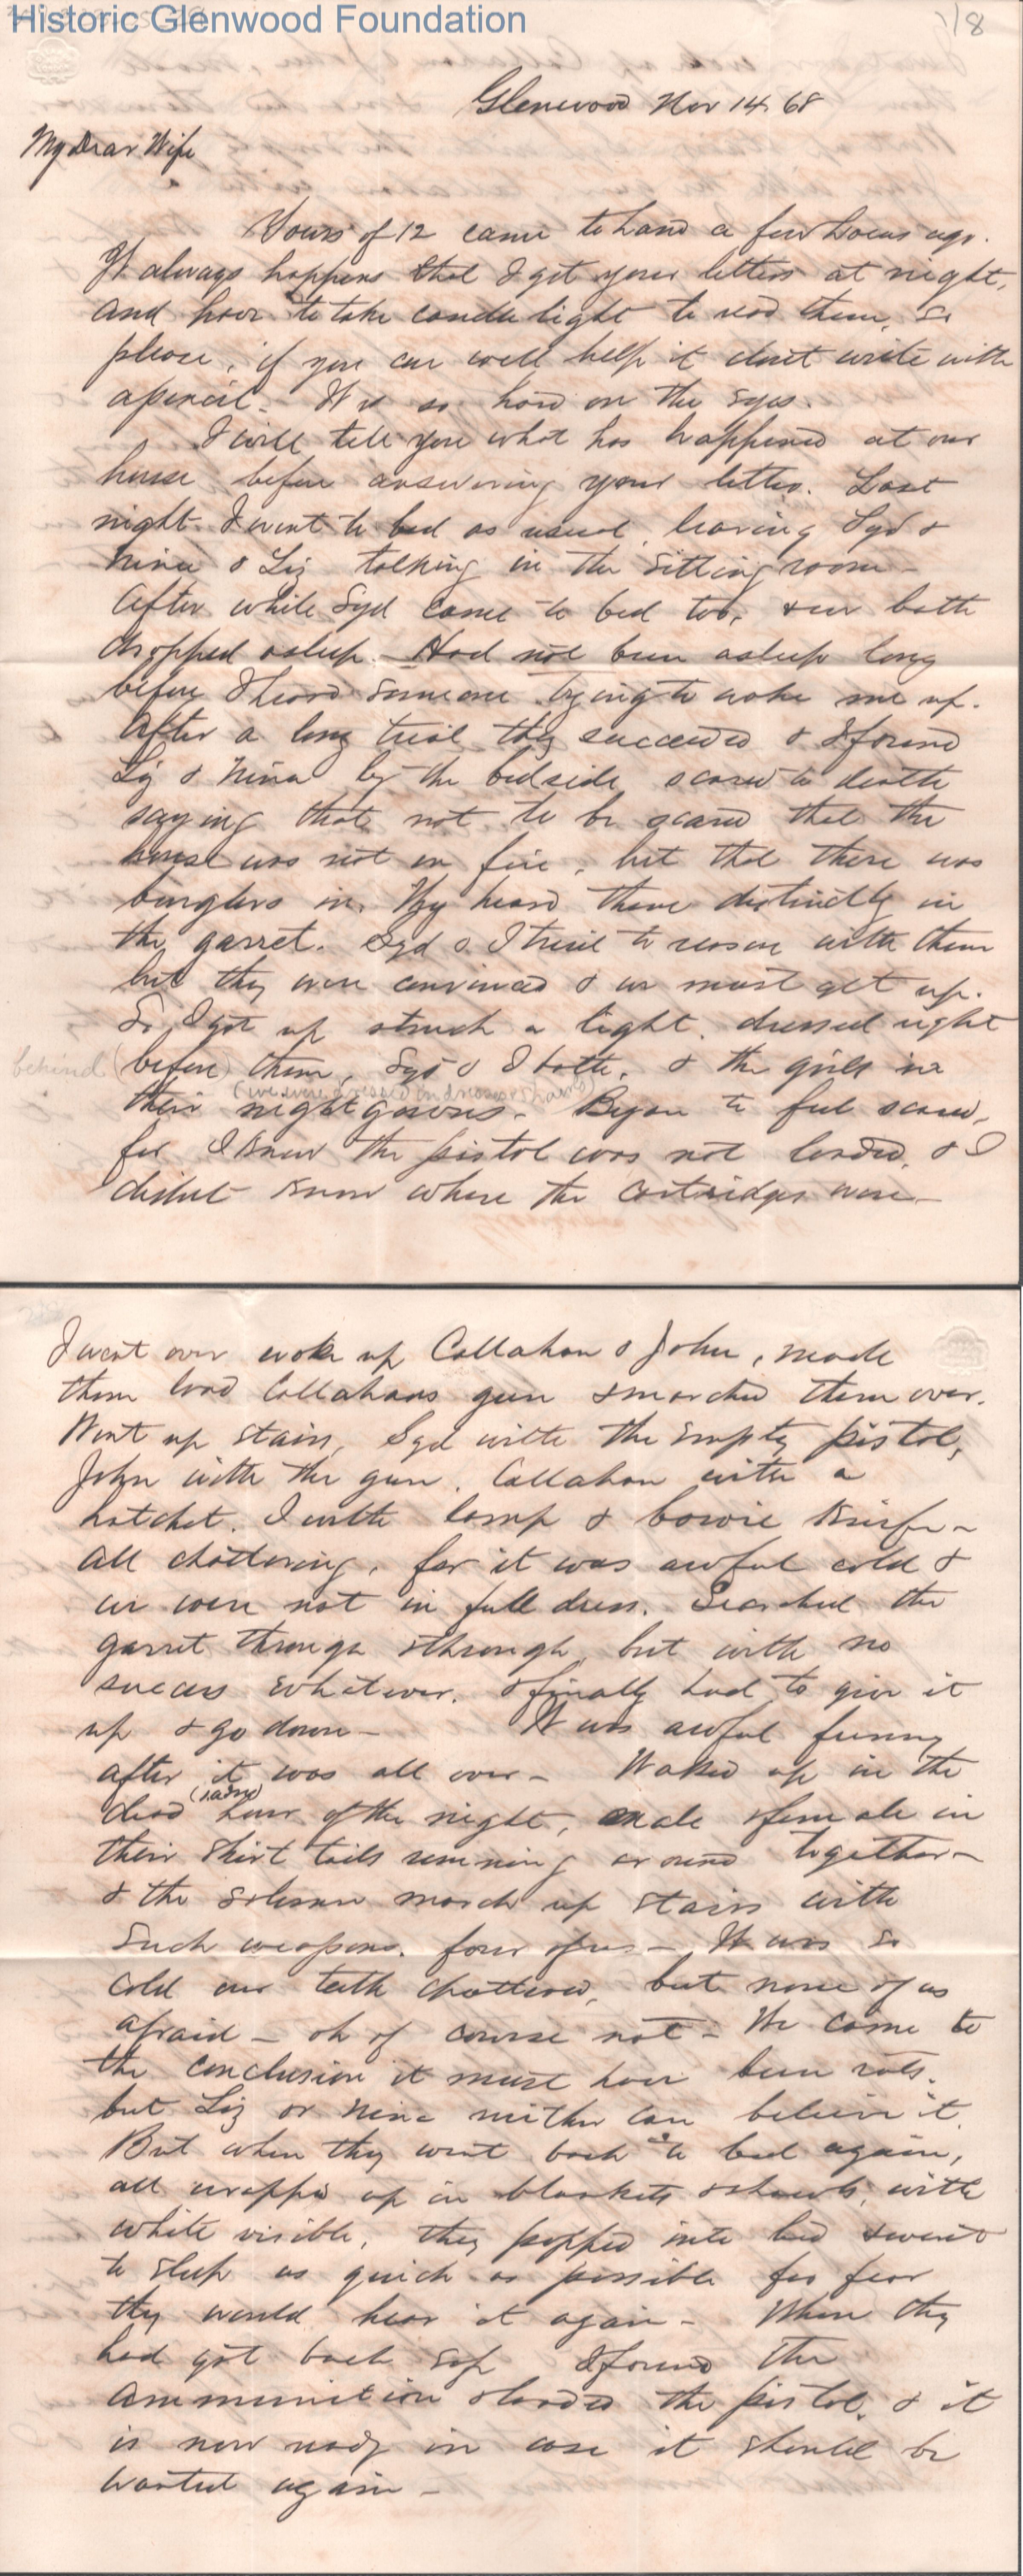 Historic Glenwood Foundation
118
Glenwood Nov 14. 68
My Dear Wife
Yours of 12 came to hand a few hours ago.
It always happens that I get your letters at night,
and have to take candle light to read them, so
please, if you can well help it dont write with
a pencil - It is so hard on the eyes.
I will tell you what has happened at our
house before answering your letter. Last
night I went to bed as usual, leaving Syd &
Nina & Liz talking in the sitting room -
After while Syd came to bed too, & we both
dropped asleep. - Had not been asleep long
before I heard someone trying to wake me up.
After a long trial they succeeded & I found
Liz & Nina by the bedside scared to death
saying that not to be scared that the
house was not on fire, but that there was
burglars in. They heard them distinctly in
the garret. Syd & I tried to reason with them
but they were convinced & we must get up.
So I got up struck a light. dressed right
behind (before) them, Syd & I both, & the girls in
(we were dressed in dresses & shawls)
their night gowns - Began to feel scared,
for I knew the pistol was not loaded, & I
didnt know where the cartridges were -
I went over woke up Callahan & John, made
them load Callahans gun & marched them over.
Went up stairs, Syd with the empty pistol,
John with the gun. Callahan with a
hatchet. I with lamp & bowie knife -
All chattering, for it was awful cold &
we were not in full dress. Searched the
garret through & through, but with no
success whatever. & finally had to give it
up & go down - It was awful funny
after it was all over - Waked up in the
dead hour of the night, male & female in
their shirt tails running around together -
& the solemn march up stairs with
such weapons. four of us - It was so
cold our teeth chattered, but none of us
afraid - oh of course not - We came to
the conclusion it must have been rats.
but Liz or Nina neither can believe it.
But when they went back to bed again,
all wrapped up in blankets & shawls, with
white visible, they popped into bed & went
to sleep as quick as possible for fear
they would hear it again - When they
had got back safe I found the
ammunition & loaded the pistol, & it
is now ready in case it should be
wanted again -